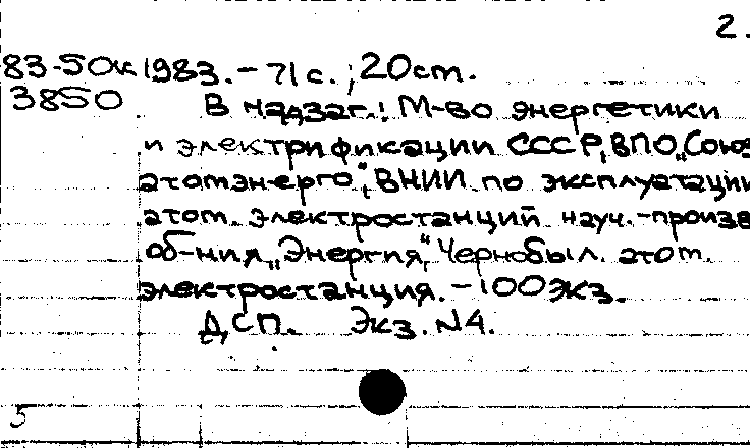 2.
83-50к 1983. - 71 с.; 20 cm.
3850 В надзаг.: М-во энергетики
и электрификации СССР, ВПО „Союз
атомэнерго“, ВНИИ по эксплуатации
атом. электростанций науч.-произв
об-ния „Энергия“, Чернобыл. атом.
электростанция. - 100 экз.
ДСП. Экз. N4.
5